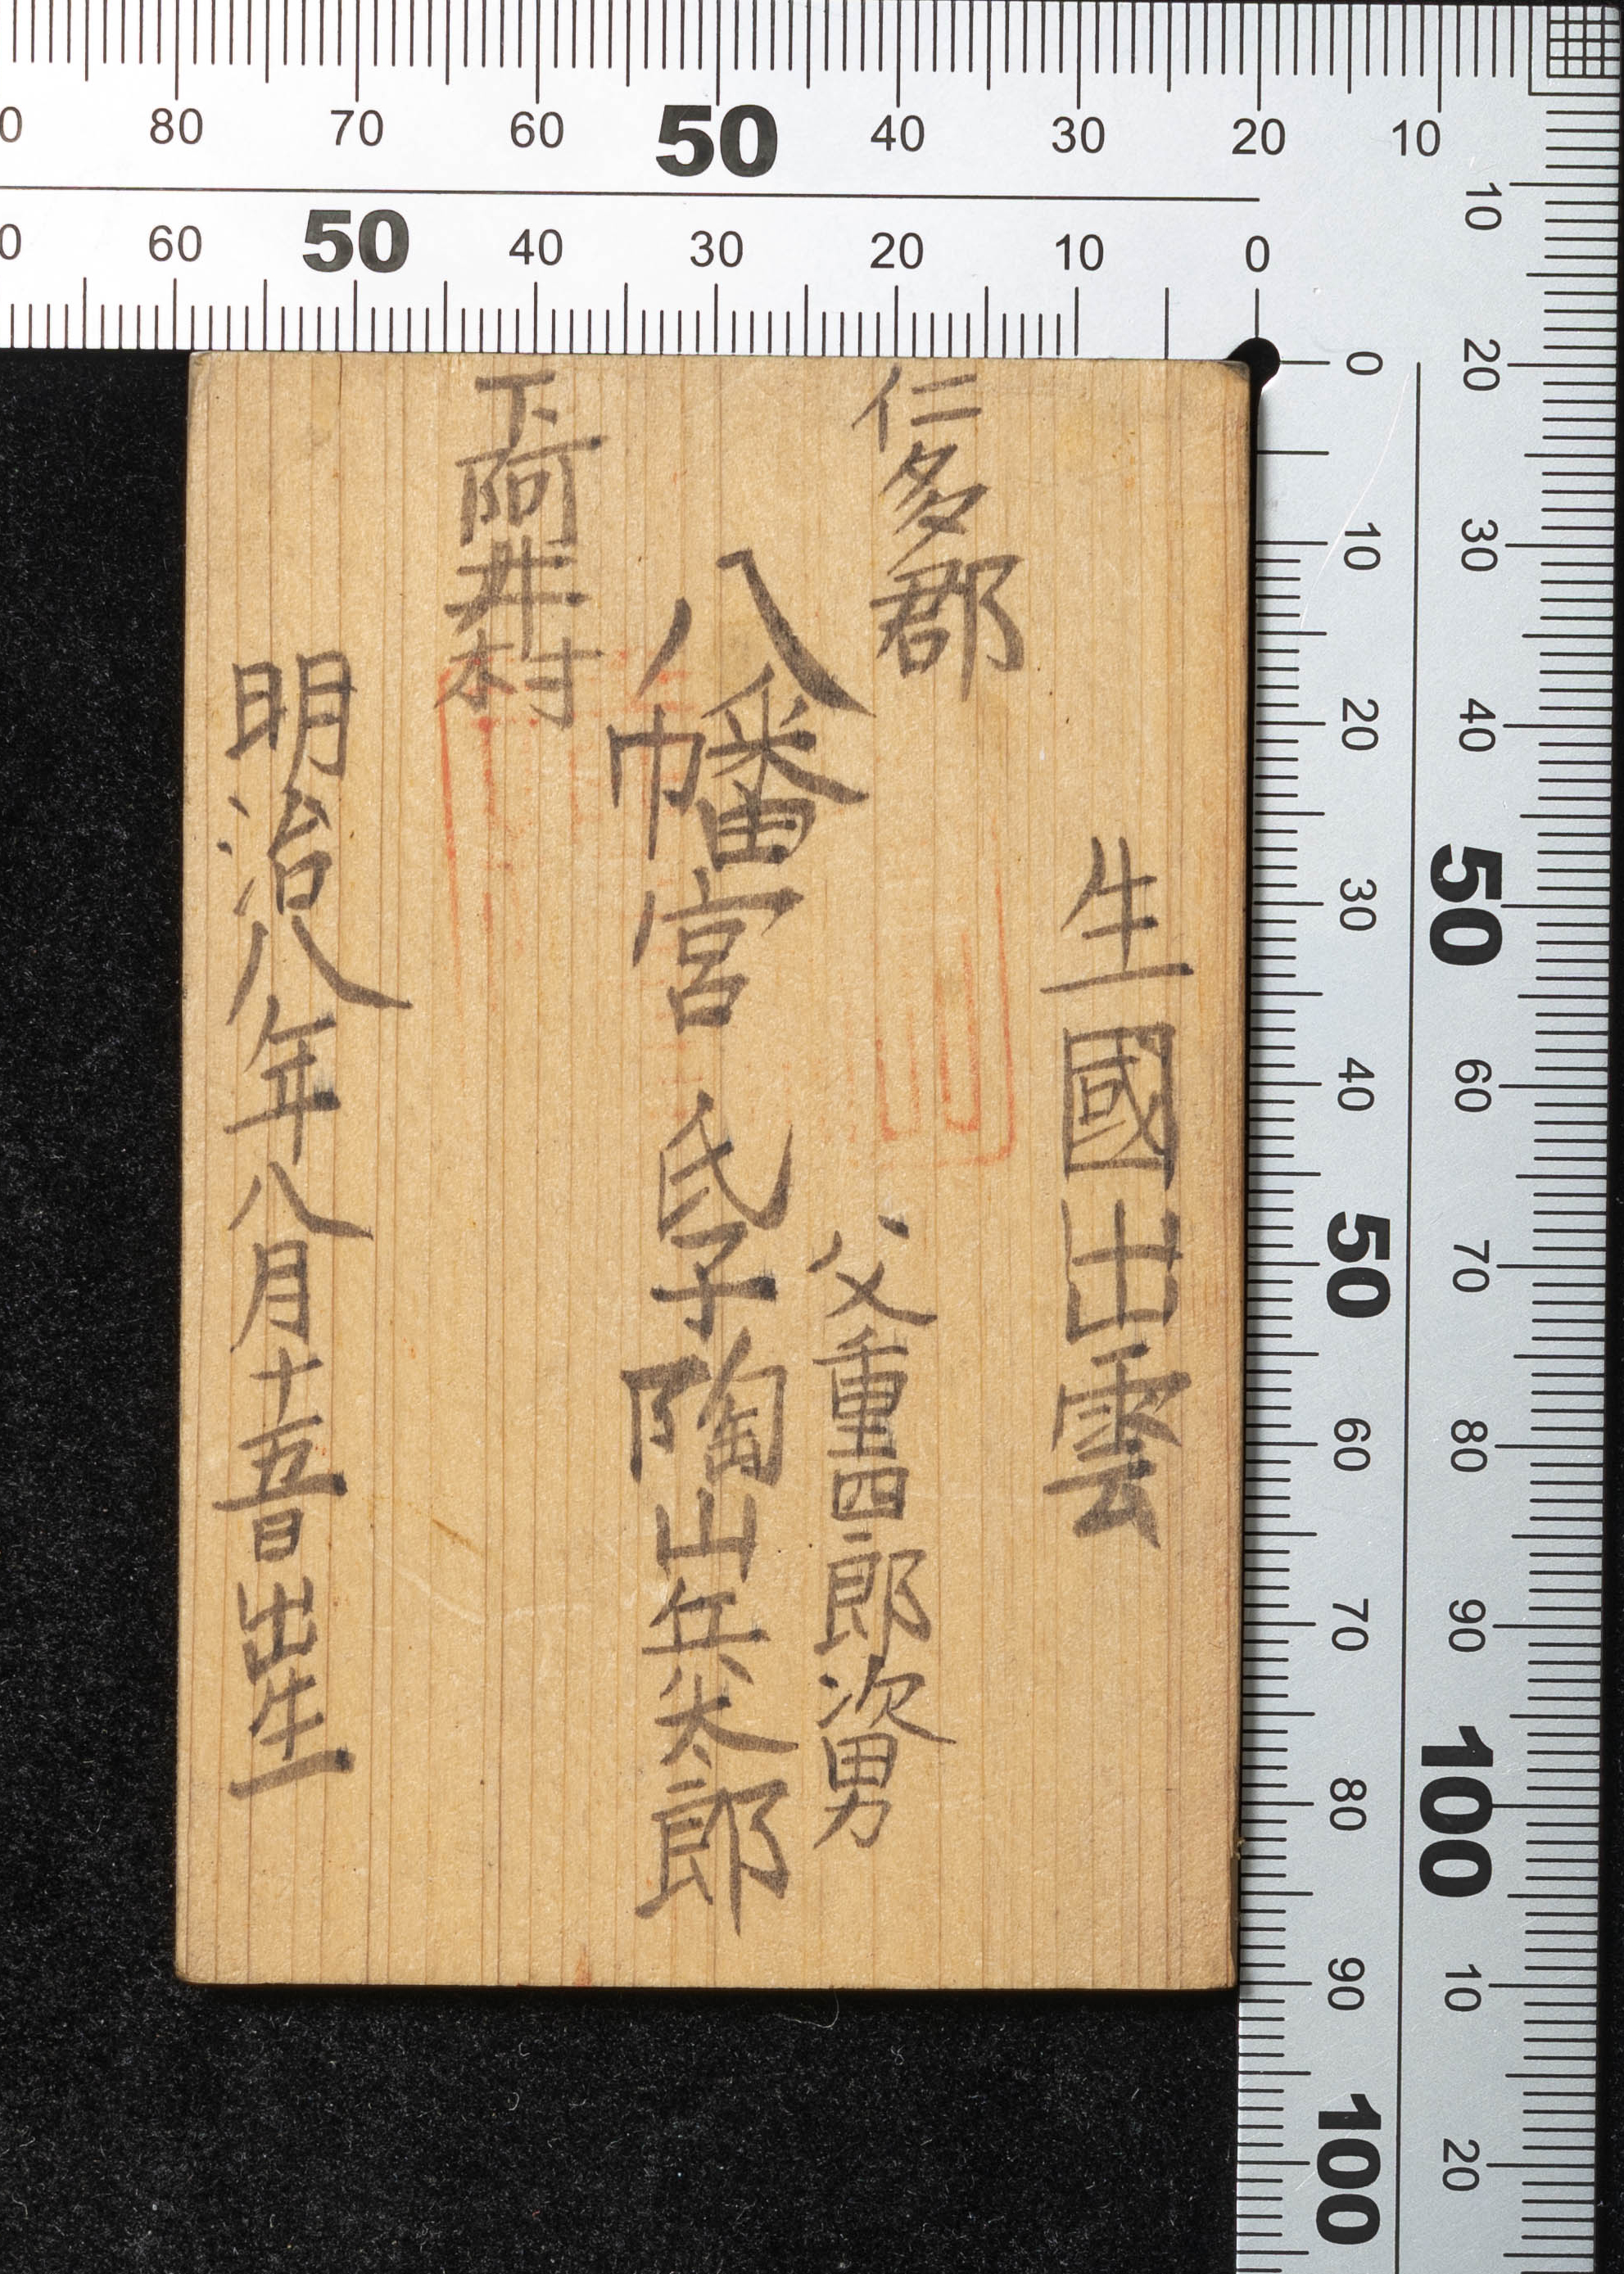 生國出雲
仁多郡
下阿井村
八幡宮 氏子陶山兵太郎
父重四郎次男
明治八年八月十五日出生
80 70 60 50 40 30 20 10
60 50 40 30 20 10 0
0 10 20 30 40 50 60 70 80 90 100
10 20 30 40 50 60 70 80 90 100 10 20